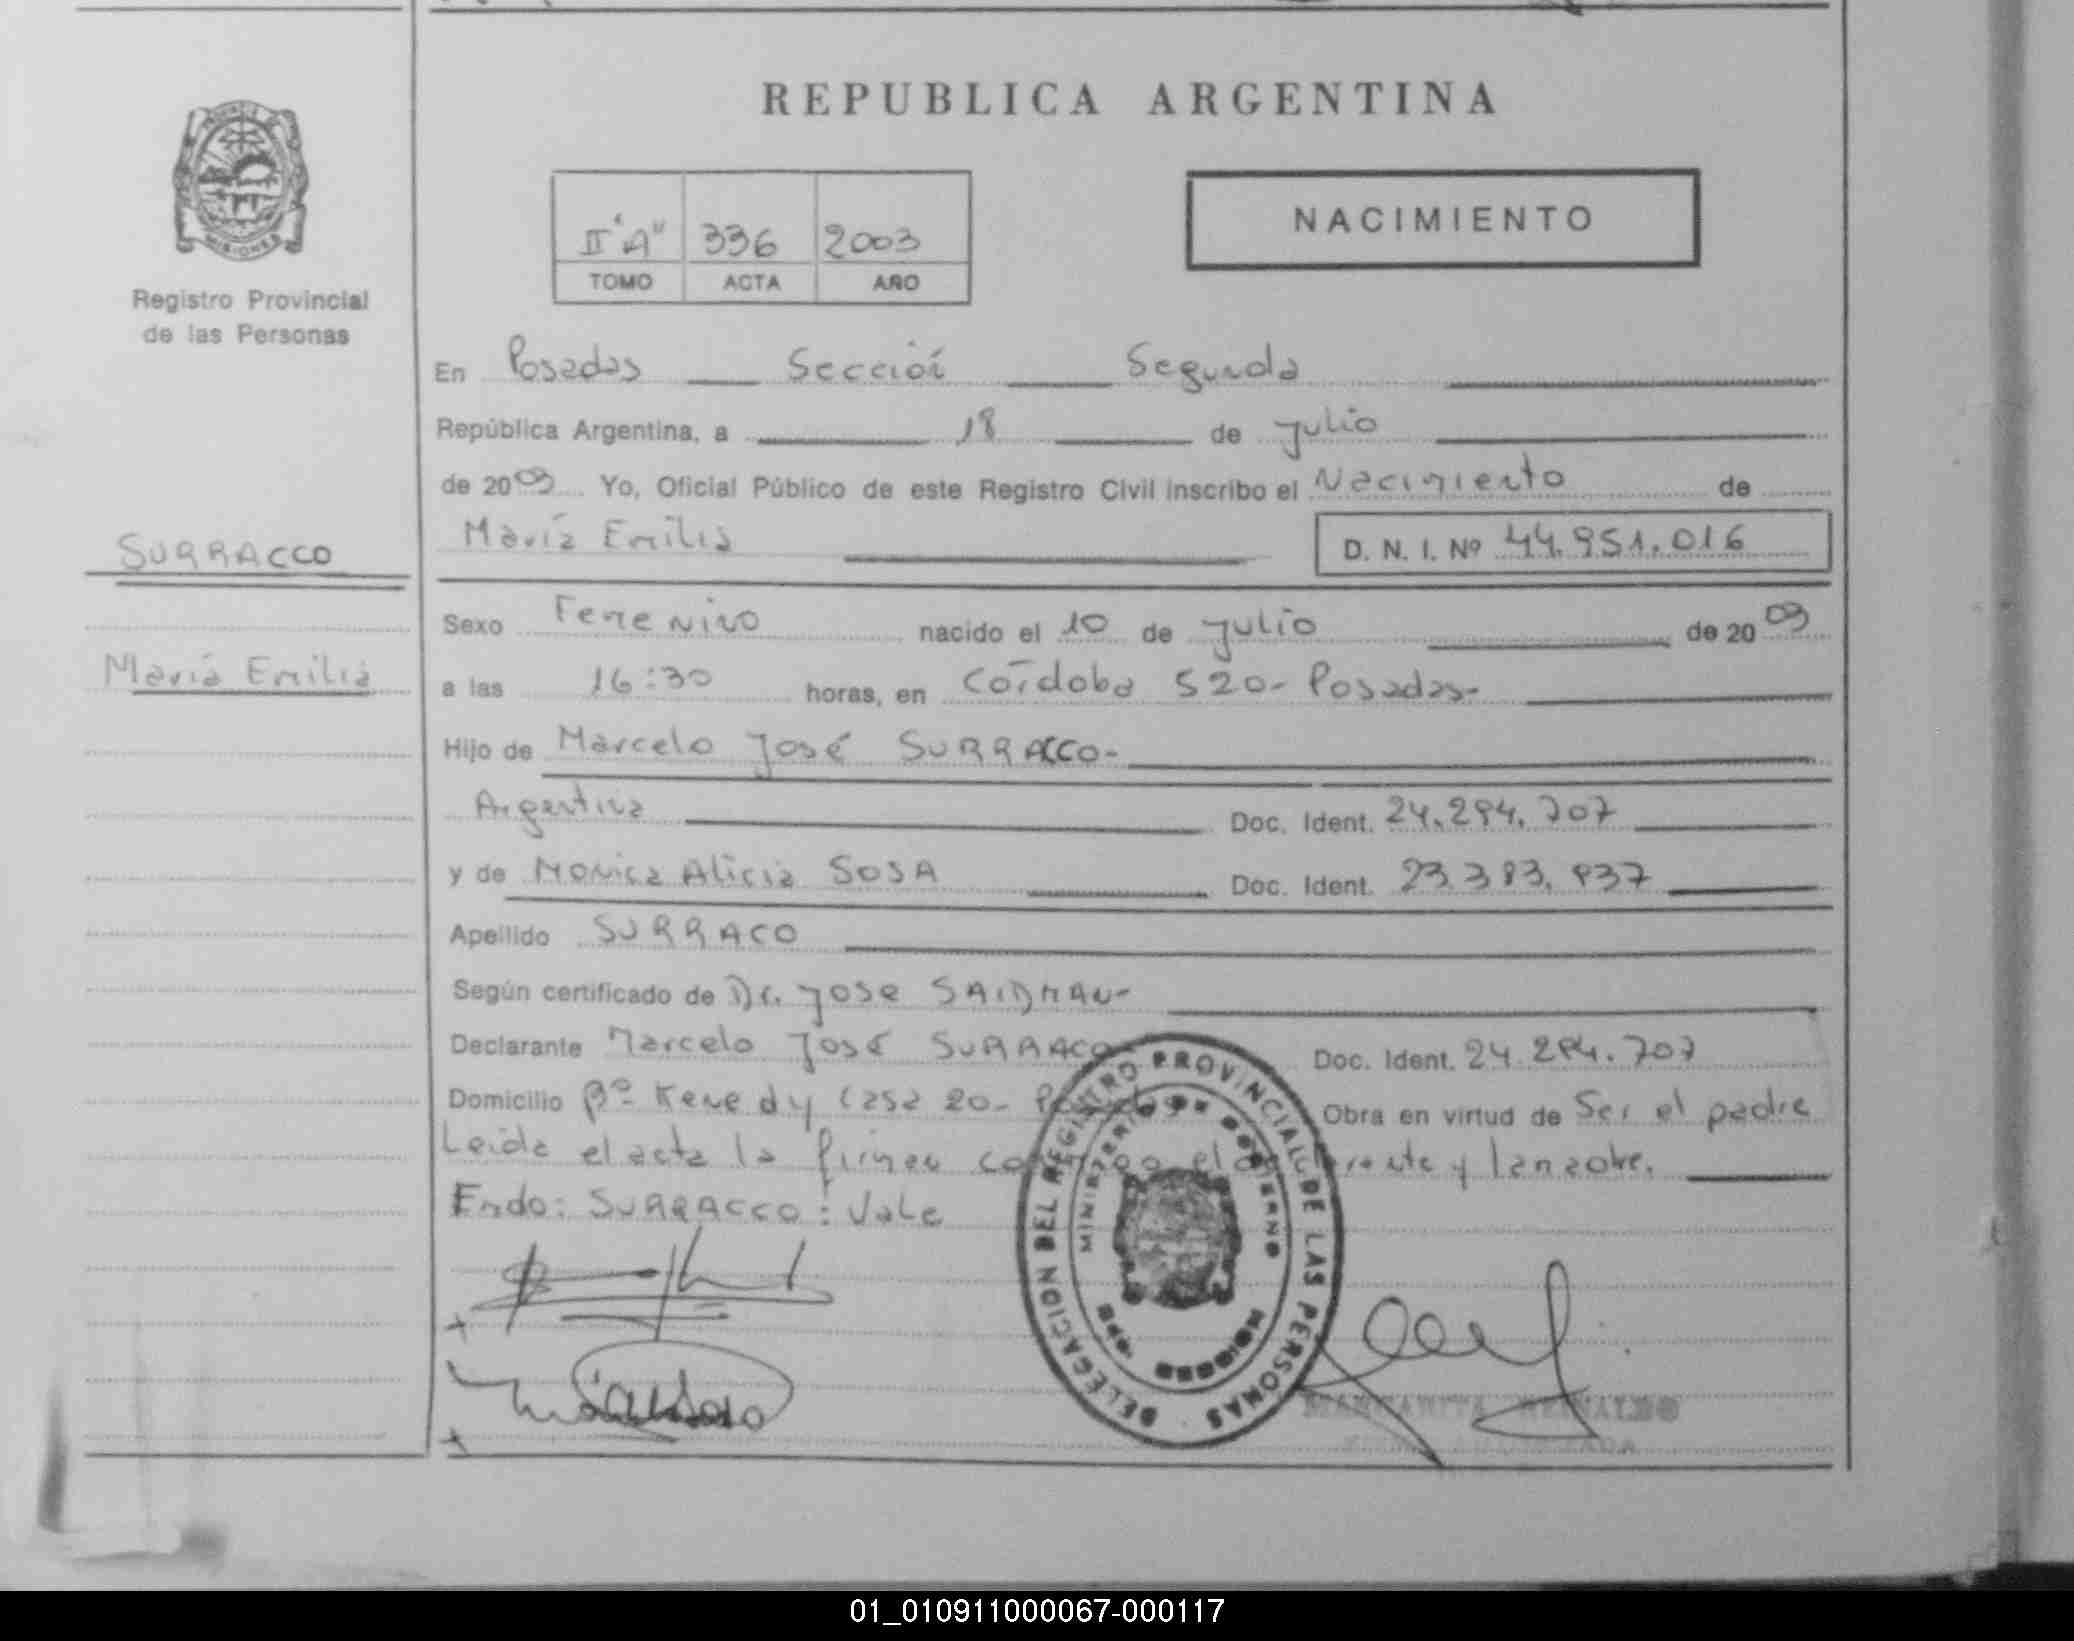 REPUBLICA ARGENTINA
MISIONES
Registro Provincial
de las Personas
II "A" 336 2003
TOMO ACTA AÑO
NACIMIENTO
En Posadas Sección Segunda
República Argentina, a 18 de Julio
de 2003 Yo, Oficial Público de este Registro Civil inscribo el Nacimiento de
María Emilia D. N. I. Nº 44.951.016
SURRACCO
María Emilia
Sexo Femenino nacido el 10 de Julio de 2003
a las 16:30 horas, en Córdoba 520- Posadas-
Hijo de Marcelo José SURRACCO-
Argentina Doc. Ident. 24.294.707
y de Monica Alicia SOSA Doc. Ident. 23.383.937
Apellido SURRACO
Según certificado de Dr. Jose SAIDMAN-
Declarante Marcelo José SURRACO Doc. Ident. 24.294.707
Domicilio Bº Kenedy Casa 20- Posadas Obra en virtud de Ser el padre
Leida el acta la firman conmigo el declarante y la madre.
Emdo: SURRACCO: Vale
DELEGACION DEL REGISTRO PROVINCIAL DE LAS PERSONAS
MINISTERIO DE GOBIERNO
MISIONES
MARGARITA REINALDO
01_010911000067-000117